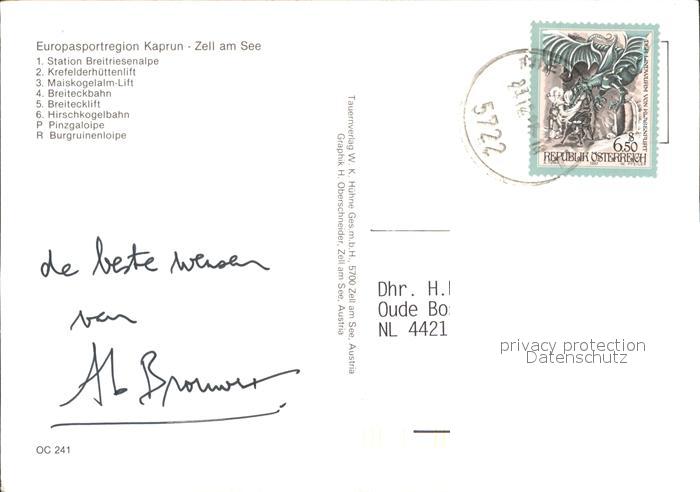 Europasportregion Kaprun - Zell am See
1. Station Breitriesenalpe
2. Krefelderhüttenlift
3. Maiskogelalm-Lift
4. Breiteckbahn
5. Breitecklift
6. Hirschkogelbahn
P Pinzgaloipe
R Burgruinenloipe
de beste wensen
van
Ab Brouwer
OC 241
Tauernverlag W. K. Hühne Ges.m.b.H., 5700 Zell am See, Austria
Graphik H. Oberschneider, Zell am See, Austria
5722
DER LINDWURM VON KLAGENFURT
S
6.50
REPUBLIK ÖSTERREICH
Dhr. H.
Oude Bos
NL 4421
privacy protection
Datenschutz